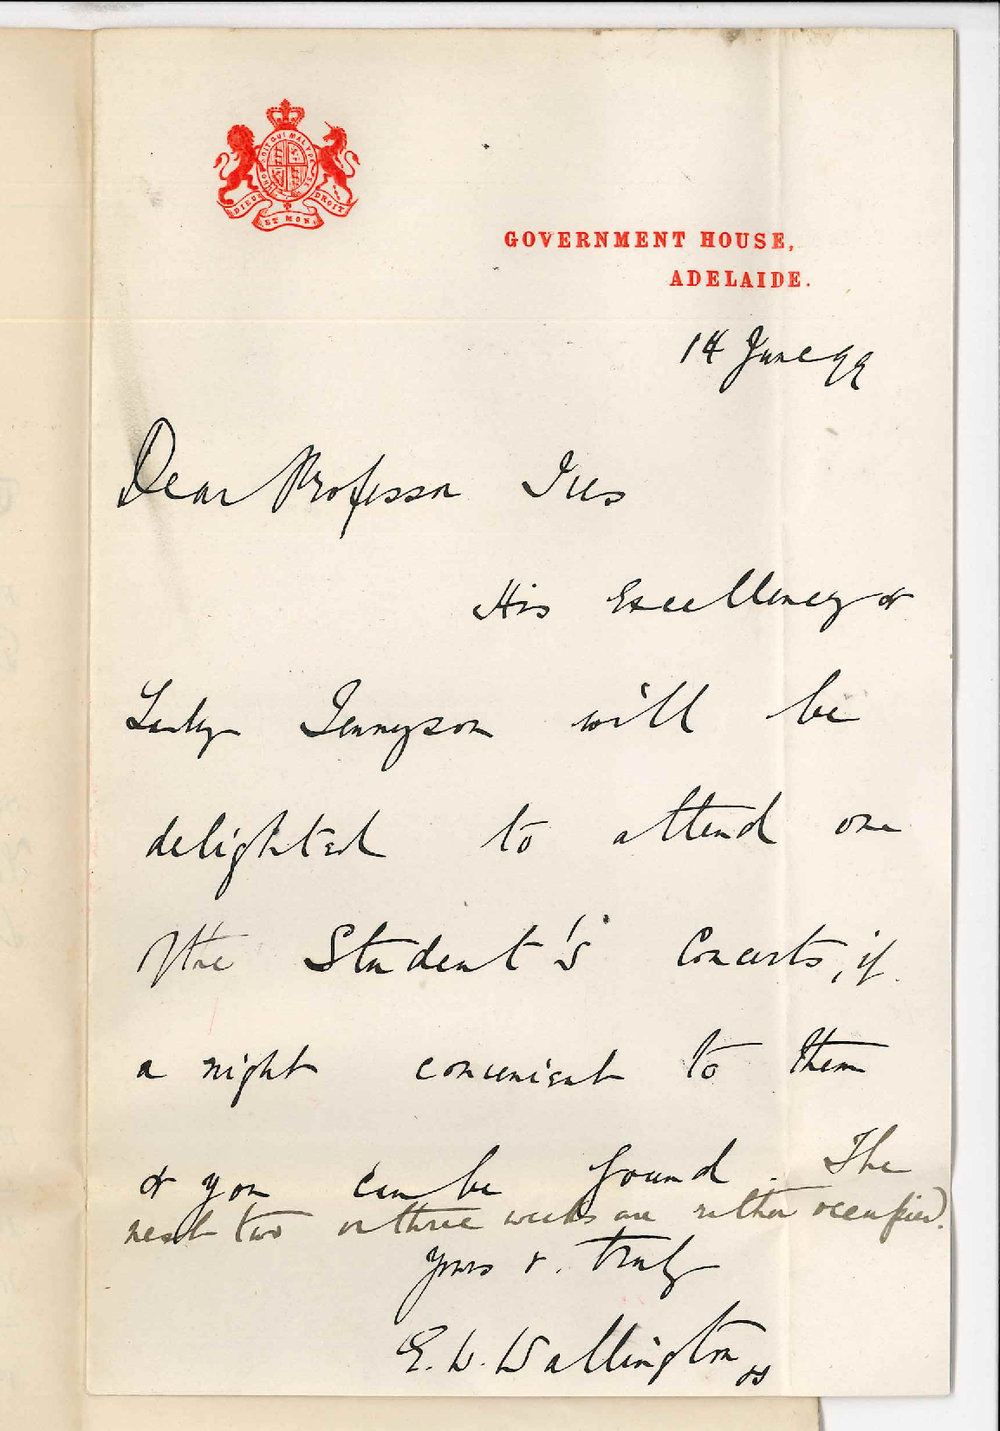 HONI SOIT QUI MAL Y PENSE
DIEU ET MON DROIT
GOVERNMENT HOUSE,
ADELAIDE.
14 June 99
Dear Professor Ives
His Excellency &
Lady Tennyson will be
delighted to attend one
of the Student's Concerts, if
a night convenient to them
& you can be found. The
next two or three weeks are rather occupied.
Yours v. truly
E. W. Wallington